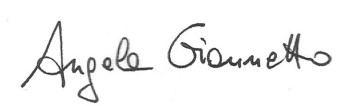 Angela Giannetto